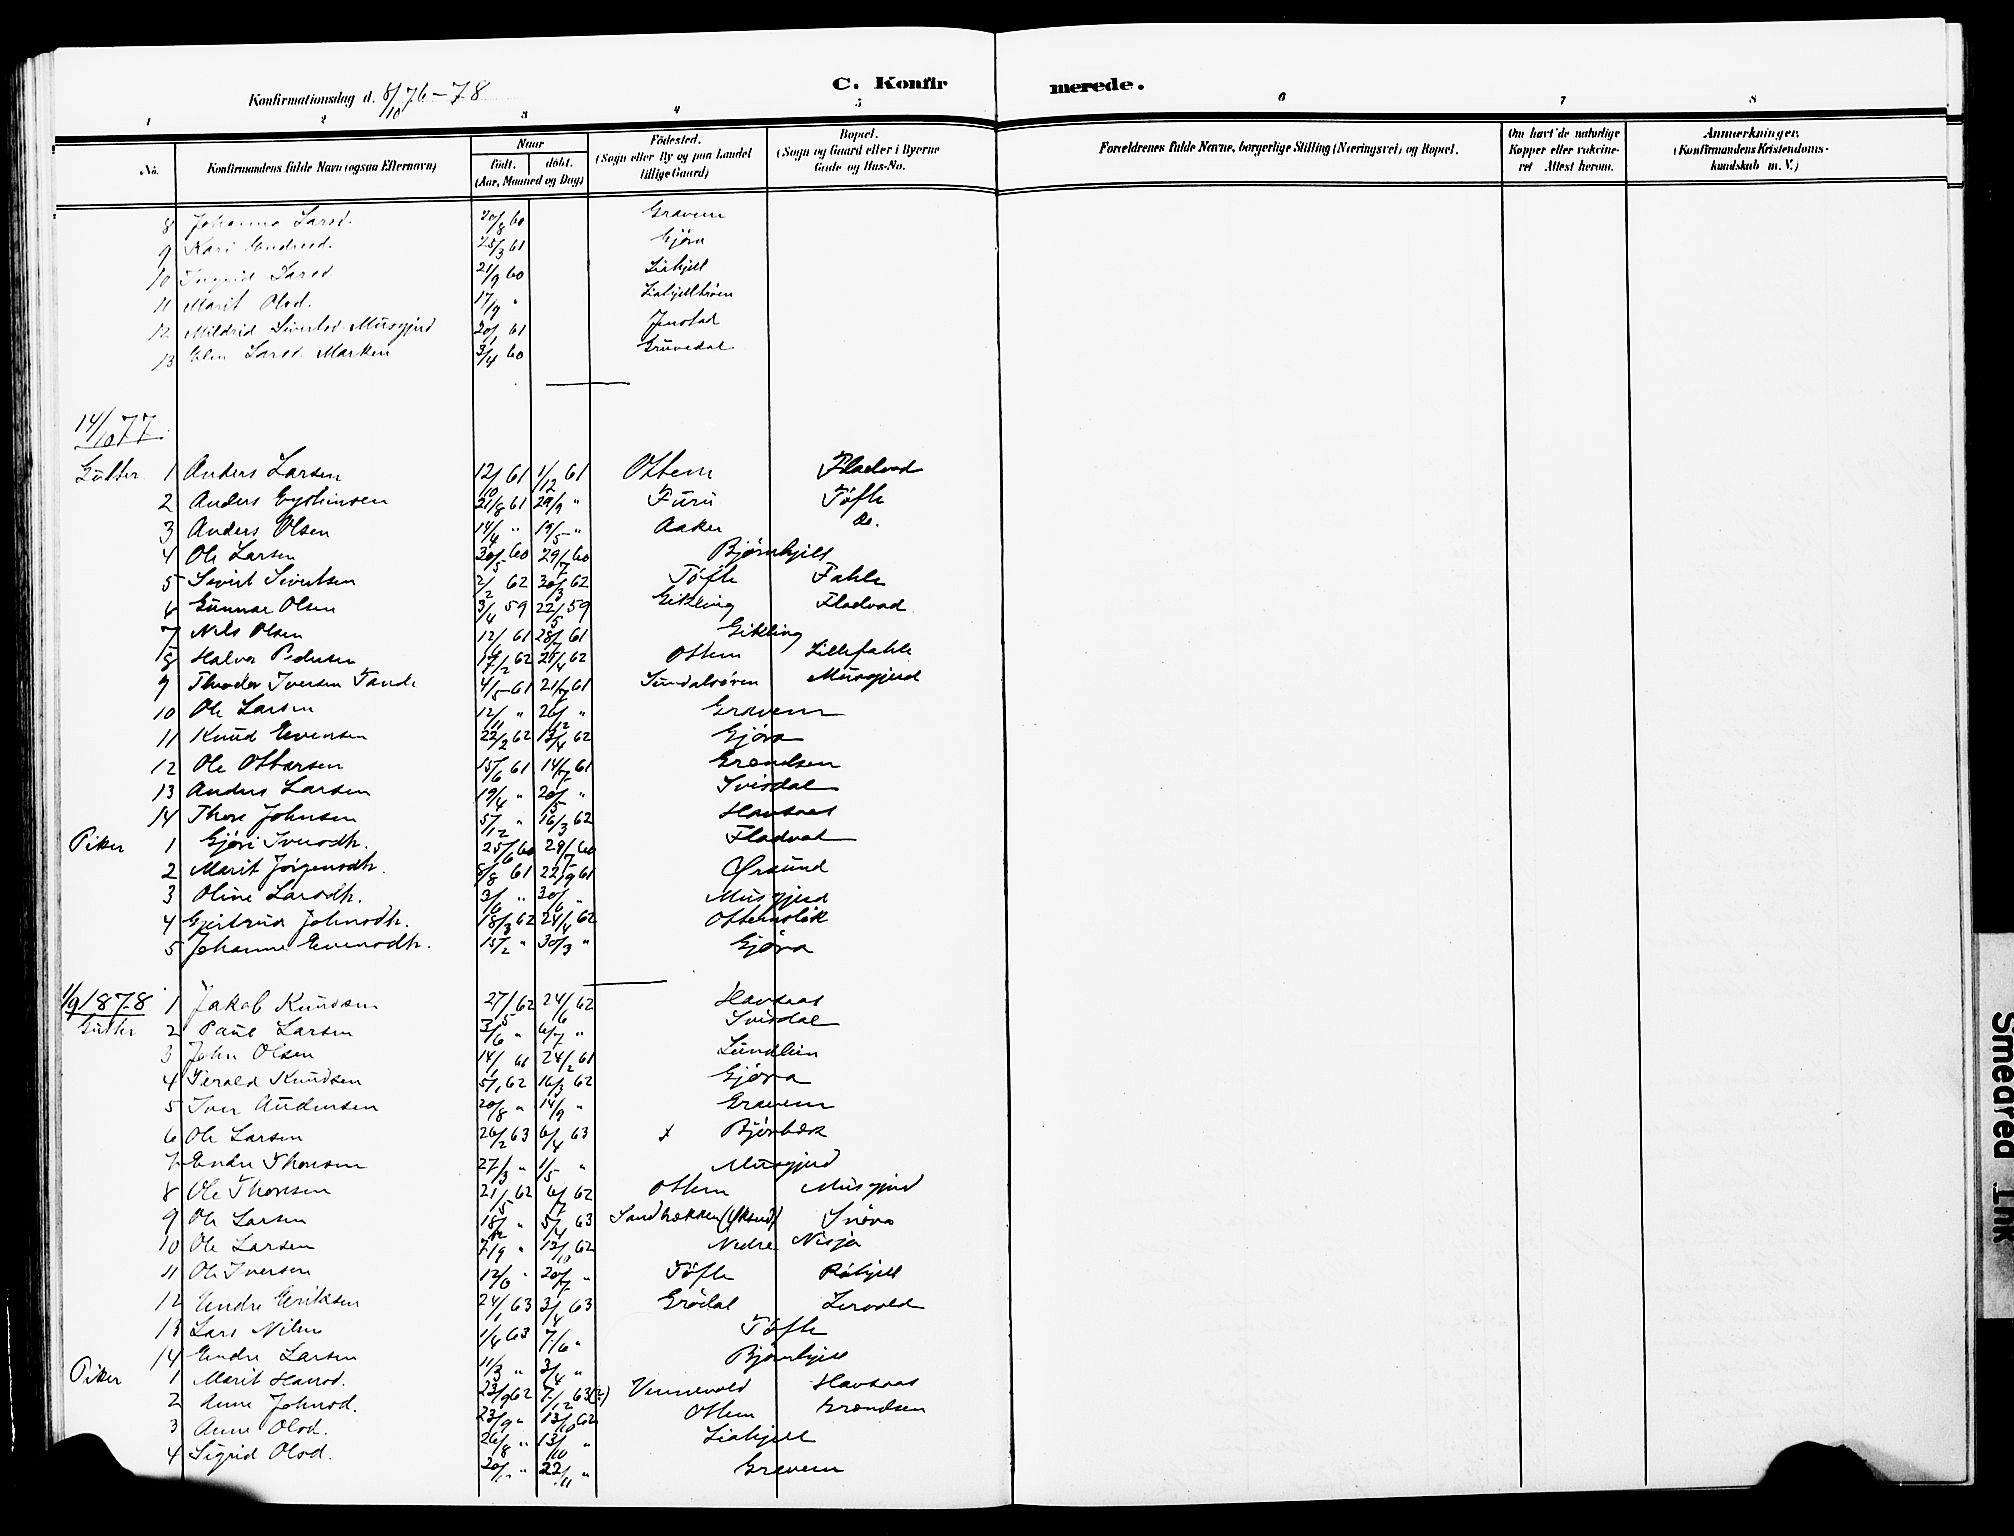 C. Konfirmerede.
Konfirmationsdag d. 8/10 76-78
1 2 3 4 5 6 7 8
No. Konfirmandens fulde Navn (ogsaa Efternavn) Naar födt. döbt. (Aar, Maaned og Dag) Födested. (Sogn eller By og paa Landet tillige Gaard) Bopæl. (Sogn og Gaard eller i Byerne Gade og Hus-No. Forældrenes fulde Navne, borgerlige Stilling (Næringsvei) og Bopæl. Om havt de naturlige Kopper eller vakcineret Attest herom. Anmærkninger. (Konfirmandens Kristendomskundskab m. V.)
8 Johanna Larsd. 20/8 60 Gravem
9 Kari Endresd. 25/3 61 Gjöra
10 Ingrid Larsd 21/9 60 Liahjell
11 Marit Olsd. 17/9 " Liahjelltröen
12 Mildrid Sivertsd. Musgjerd 20/1 61 Jenstad
13 Larsd. Marken 3/4 60 Gruvedal
14/10 77
Gutter 1 Anders Larsen 12/10 61 1/12 61 Ottem Fladvad
2 Anders Eysteinsen 21/8 61 29/9 " Furu Töfte
3 Anders Olsen 14/4 " 19/5 " Aaker Do.
4 Ole Larsen 30/5 60 29/7 60 Björnhjell
5 Sivert Sivertsen 2/2 62 30/3 62 Töfte Fahle
6 Gunnar Olsen 3/4 59 22/5 59 Gikling Fladvad
7 Nils Olsen 12/6 61 28/7 61 Gikling
8 Halvor Pedersen 17/2 62 21/4 62 Ottem Lillefahle
9 Theodor Iversen Tande 4/5 61 21/7 61 Sundalsören Musgjerd
10 Ole Larsen 12/11 " 26/12 " Gravem
11 Knud Evensen 22/2 62 13/4 62 Gjöra
12 Ole Ottarsen 15/6 61 14/7 61 Grændsen
13 Anders Larsen 19/4 " 20/5 " Svisdal
14 Thore Johnsen 5/12 " 16/3 62 Havsaas
Piker 1 Gjöri Iversdh. 25/6 60 29/7 60 Fladvad
2 Marit Jörgensdh. 8/8 61 22/9 61 Øxsund
3 Oline Larsdh. 3/6 " 30/6 " Musgjerd
4 Gjertrud Johnsdh. 18/3 62 24/4 62 Ottemslök
5 Johanne Evensdh. 15/2 " 30/3 " Gjöra
1/9 1878
Gutter 1 Jakob Knudsen 27/5 62 24/6 62 Havsaas
2 Paul Larsen 3/6 " 6/7 " Svisdal
3 John Olsen 14/1 61 24/2 61 Lundlein
4 Terald Knudsen 5/1 62 16/3 62 Gjöra
5 Iver Andersen 20/8 " 14/9 " Gravem
6 Ole Larsen 26/2 63 6/4 63 x Björbæk
7 Endre Thoresen 27/3 " 1/5 " Musgjerd
8 Ole Thoresen 21/5 62 6/7 62 Ottem Musgjerd
9 Ole Larsen 18/12 " 5/4 63 Sandbækken (Øksend) Snöva
10 Ole Larsen 7/9 " 12/10 62 Nedre Nisja
11 Ole Iversen 12/6 " 20/7 " Töfte Röhjell
12 Endre Eriksen 24/1 63 3/4 63 Grödal Lervold
13 Lars Nilsen 1/4 63 7/6 " Töfte
14 Endre Larsen 11/3 " 3/4 " Björnhjell
Piker 1 Marit Hansd. 23/9 62 7/12 63 (2) Vennevold Havsaas
2 Anne Johnsd. 23/9 " 13/10 62 Ottem Grændsen
3 Anne Olsd. 26/8 " 13/10 " Liahjell
4 Sigrid Olsd. 20/ " 22/11 " Gravem
Smeared Ink